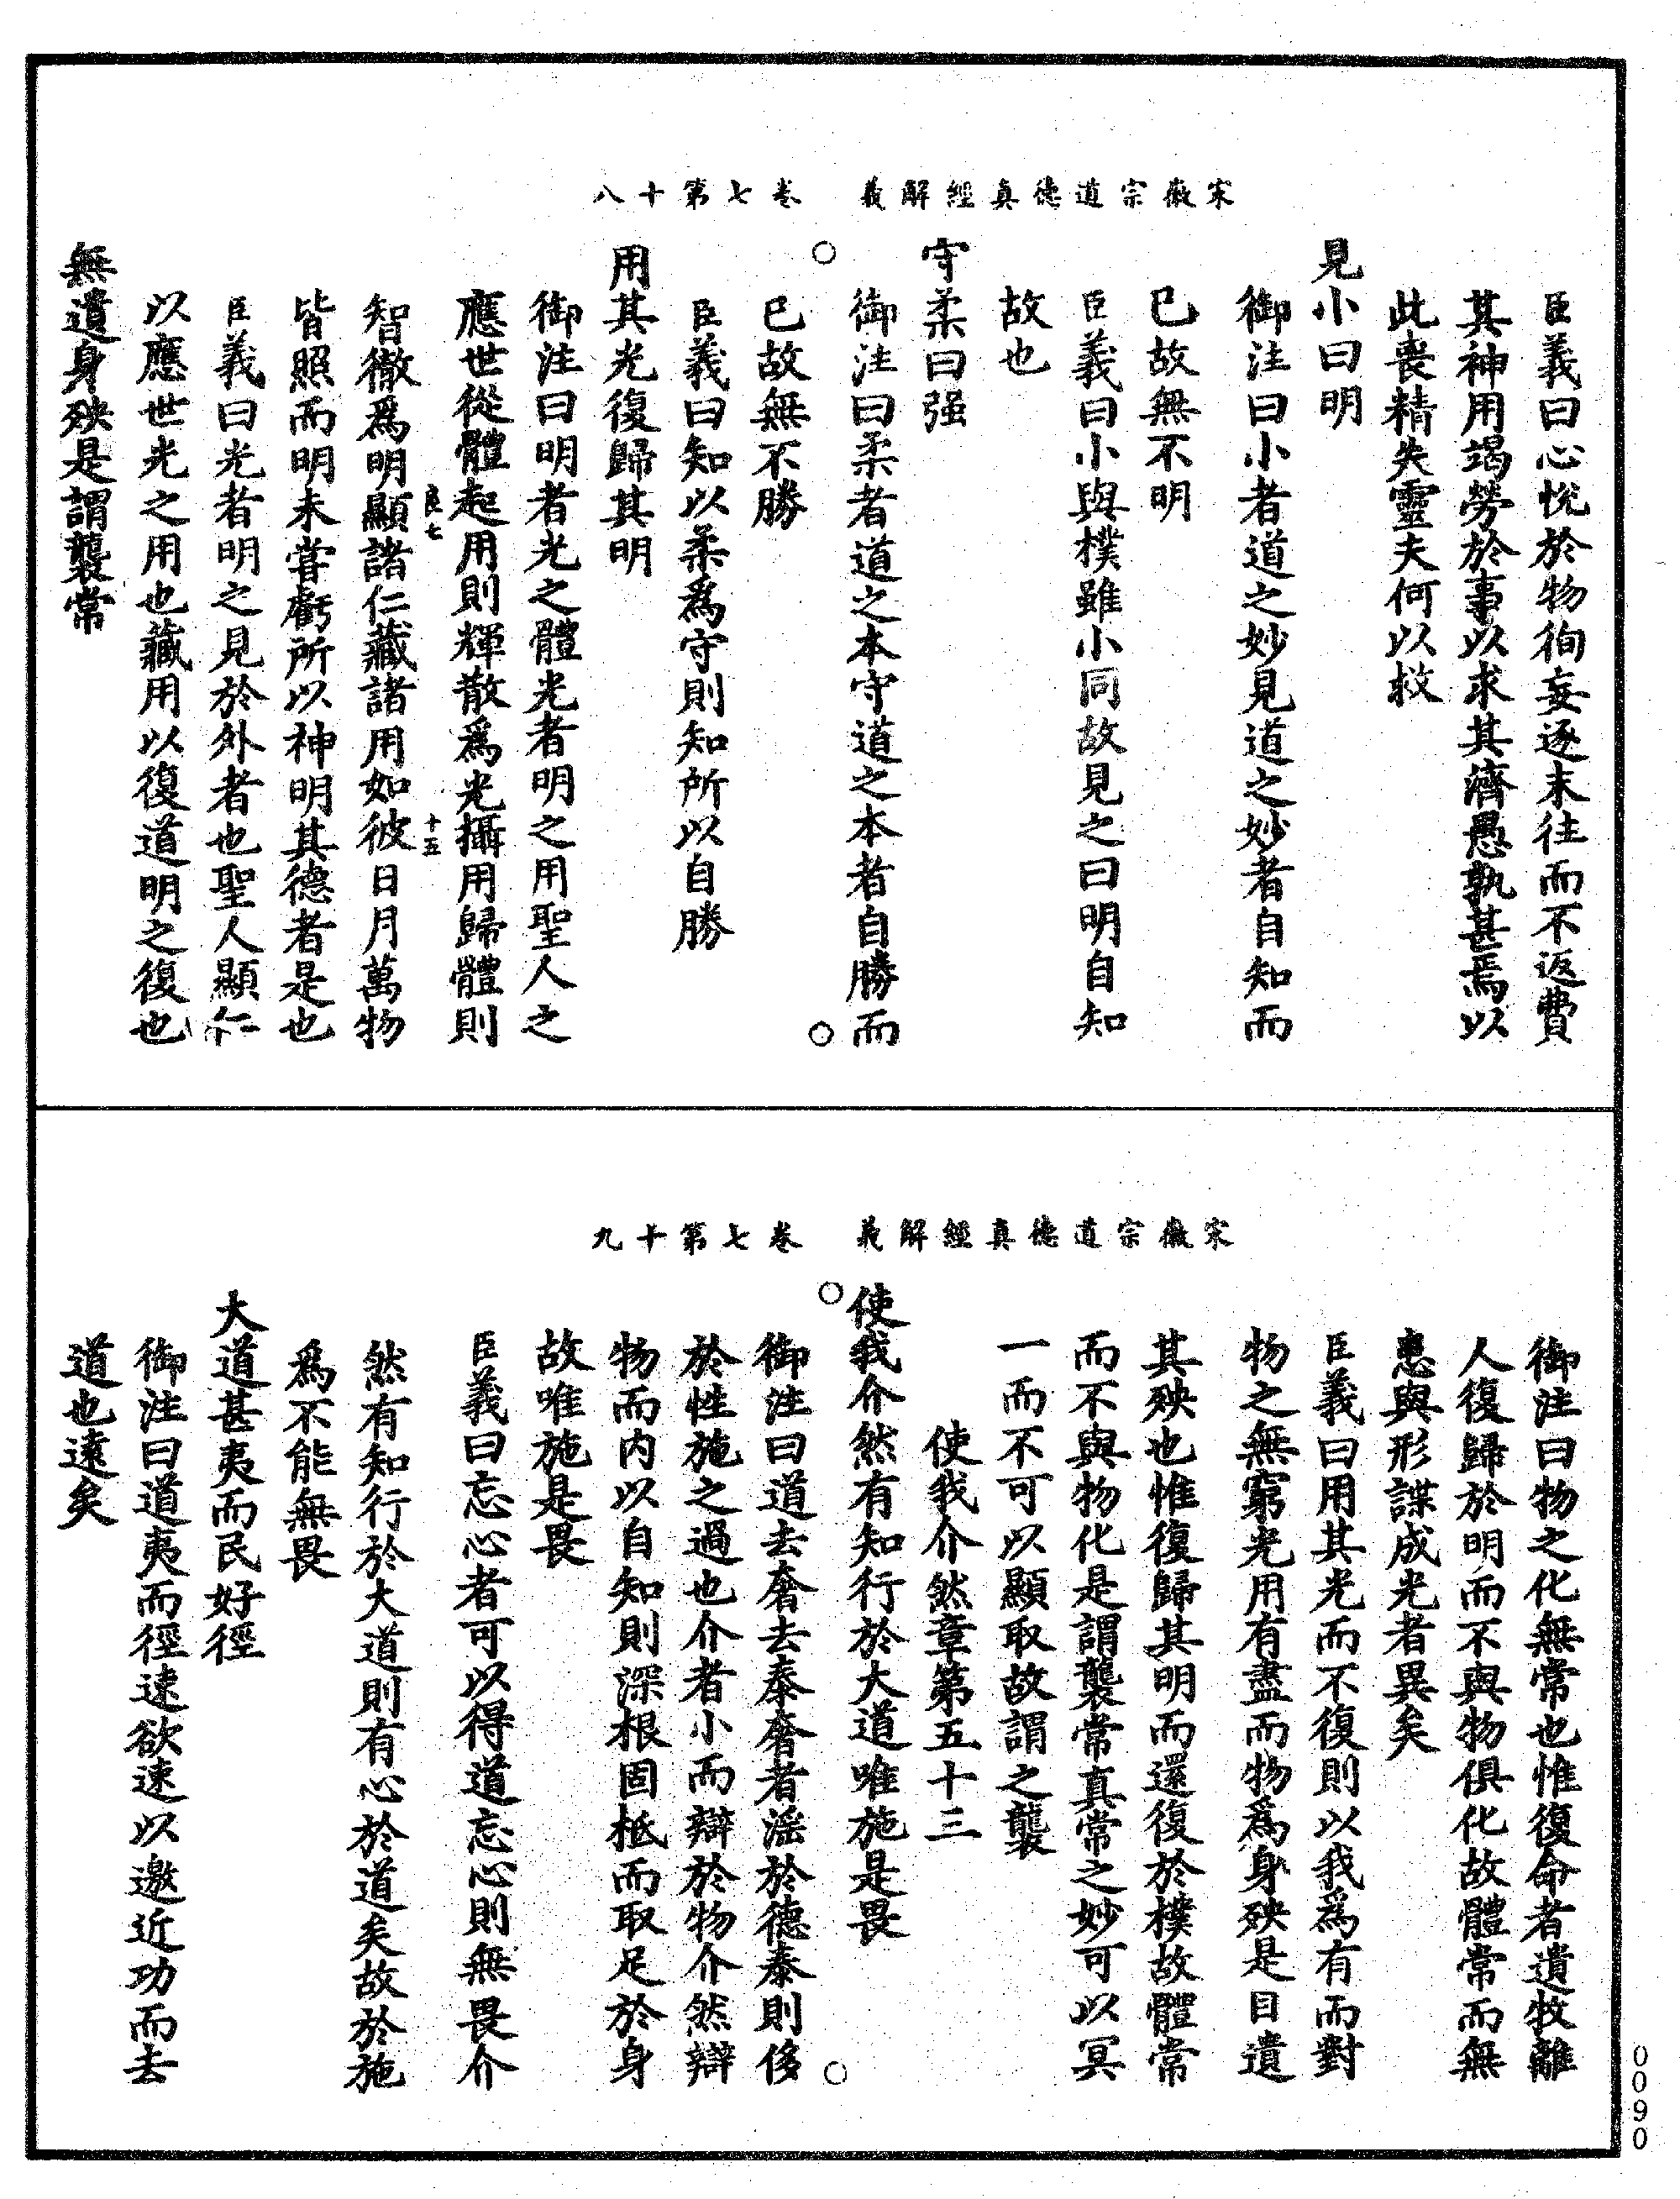 宋徽宗道德真經解義　卷七第十八
臣義曰心悅於物徇妄逐末往而不返費
其神用竭勞於事以求其濟愚孰甚焉以
此喪精失靈夫何以救
見小曰明
御注曰小者道之妙見道之妙者自知而
已故無不明
臣義曰小與樸雖小同故見之曰明自知
故也
守柔曰强
御注曰柔者道之本守道之本者自勝而
已故無不勝
臣義曰知以柔爲守則知所以自勝
用其光復歸其明
御注曰明者光之體光者明之用聖人之
應世從體起用則輝散爲光攝用歸體則
良七　十五
智徹爲明顯諸仁藏諸用如彼日月萬物
皆照而明未嘗虧所以神明其德者是也
臣義曰光者明之見於外者也聖人顯仁
以應世光之用也藏用以復道明之復也
無遺身殃是謂襲常
宋徽宗道德真經解義　卷七第十九
御注曰物之化無常也惟復命者遺牧離
人復歸於明而不與物俱化故體常而無
患與形諜成光者異矣
臣義曰用其光而不復則以我爲有而對
物之無窮光用有盡而物爲身殃是自遺
其殃也惟復歸其明而還復於樸故體常
而不與物化是謂襲常真常之妙可以冥
一而不可以顯取故謂之襲
使我介然章第五十三
使我介然有知行於大道唯施是畏
御注曰道去奢去泰奢者淫於德泰則侈
於性施之過也介者小而辯於物介然辯
物而内以自知則深根固柢而取足於身
故唯施是畏
臣義曰忘心者可以得道忘心則無畏介
然有知行於大道則有心於道矣故於施
爲不能無畏
大道甚夷而民好徑
御注曰道夷而徑速欲速以邀近功而去
道也遠矣
0090